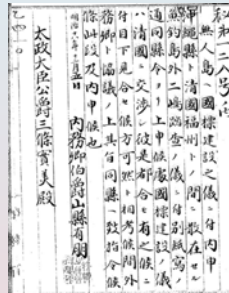 秘第一二八号ノ内
無人島ヘ國標建設之儀ニ付内申
沖縄縣ト清國福州トノ間ニ散在セル
魚釣島外二嶋踏査之儀ニ付別紙写ノ
通同縣令ヨリ上申候處國標建設ノ儀
ハ清國ニ交渉シ彼是都合モ有之候ニ
付目下見合セ候方可然ト相考候間外
務卿ト協議ノ上其旨同縣ヘ致指令候
條此段及内申候也
明治十八年十二月五日
内務卿伯爵山縣有朋
太政大臣公爵三條實美殿